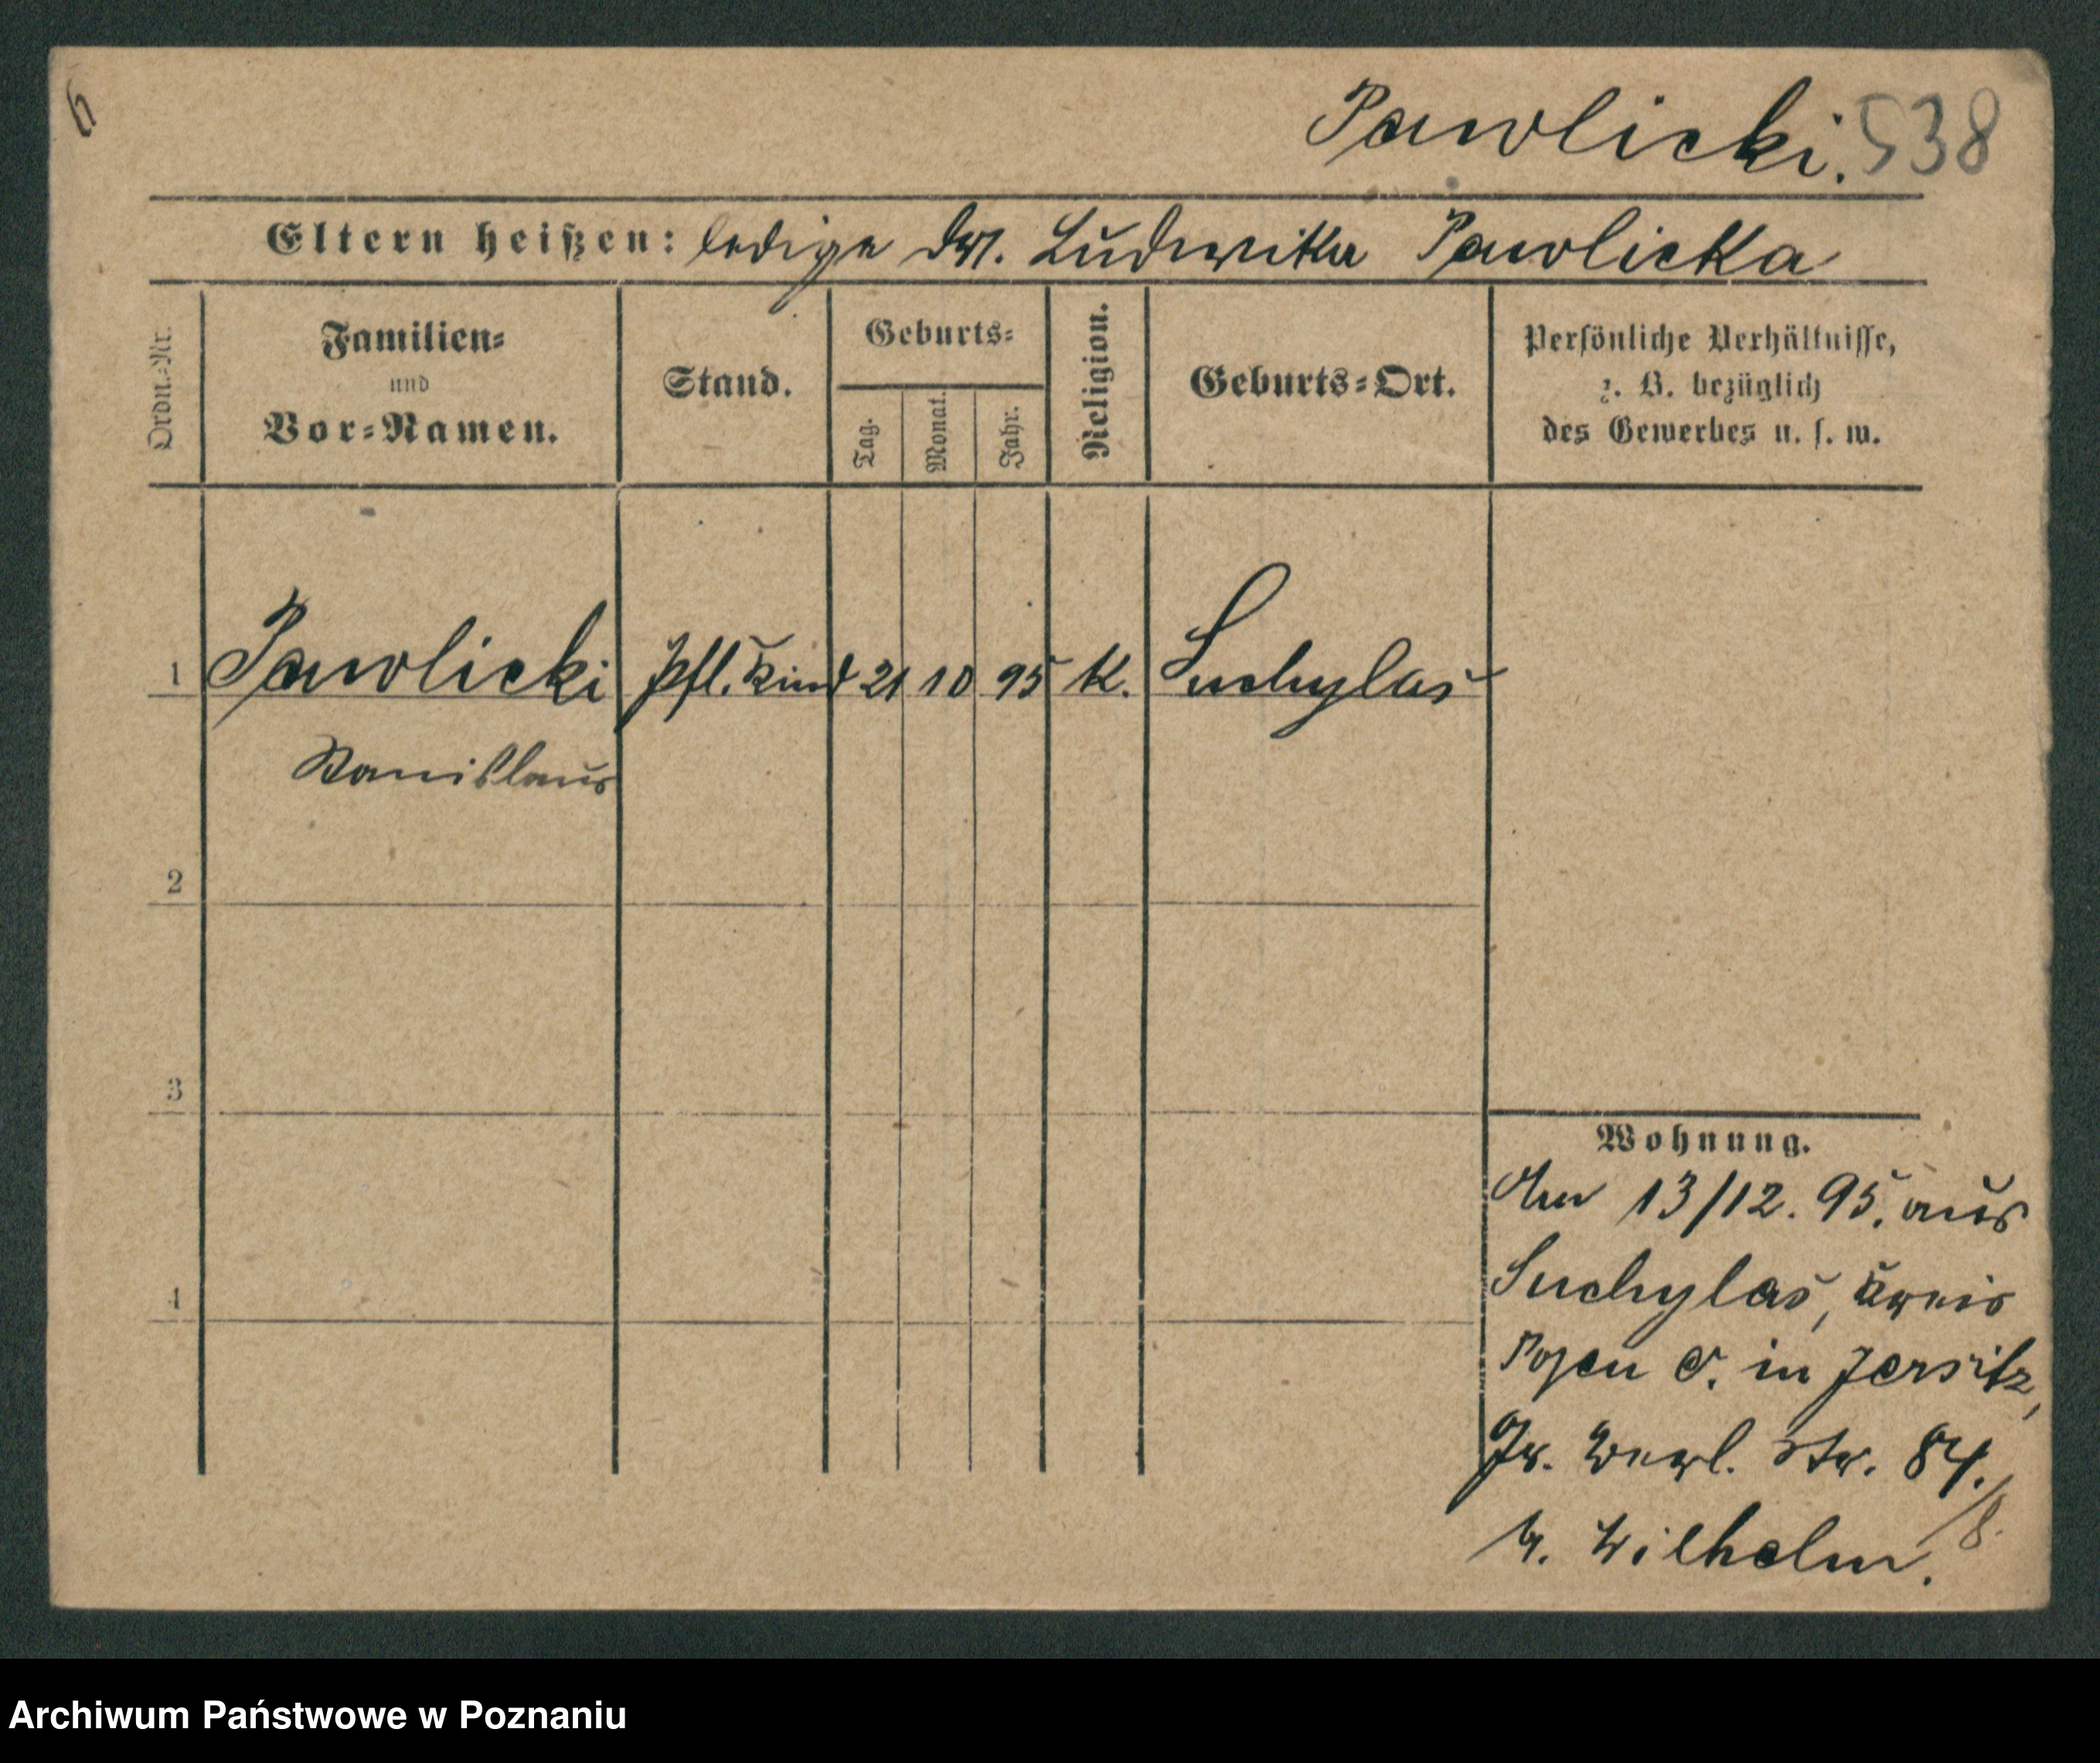 Pawlicki. 538
Eltern heißen: ledige Ludwika Pawlicka
Ordn.-Nr.
Familien-
und
Vor-Namen.
Stand.
Geburts-
Tag.
Monat.
Jahr.
Religion.
Geburts-Ort.
Persönliche Verhältnisse,
z. B. bezüglich
des Gewerbes u. s. w.
1 Pawlicki pfl. Kind 21 10 95 K. Suchylas
Stanislaus
2
3
4
Wohnung.
Am 13/12. 95. aus
Suchylas, Kreis
Posen O. in Jersitz,
Gr. Berl. Str. 84.
b. Wilhelm.
Archiwum Państwowe w Poznaniu